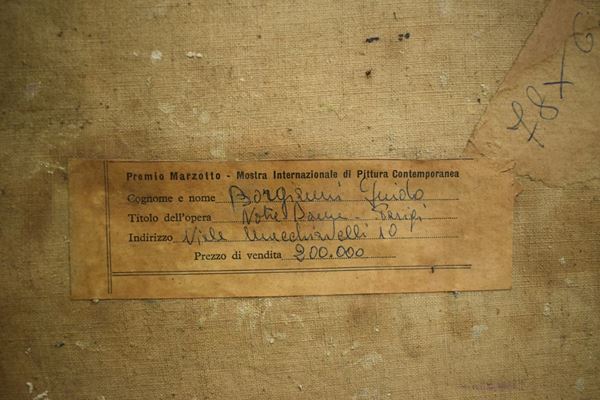 48 x 6
Premio Marzotto - Mostra Internazionale di Pittura Contemporanea
Cognome e nome Borgianni Guido
Titolo dell'opera Notre Dame - Parigi
Indirizzo Viale Macchiavelli 10
Prezzo di vendita 200.000